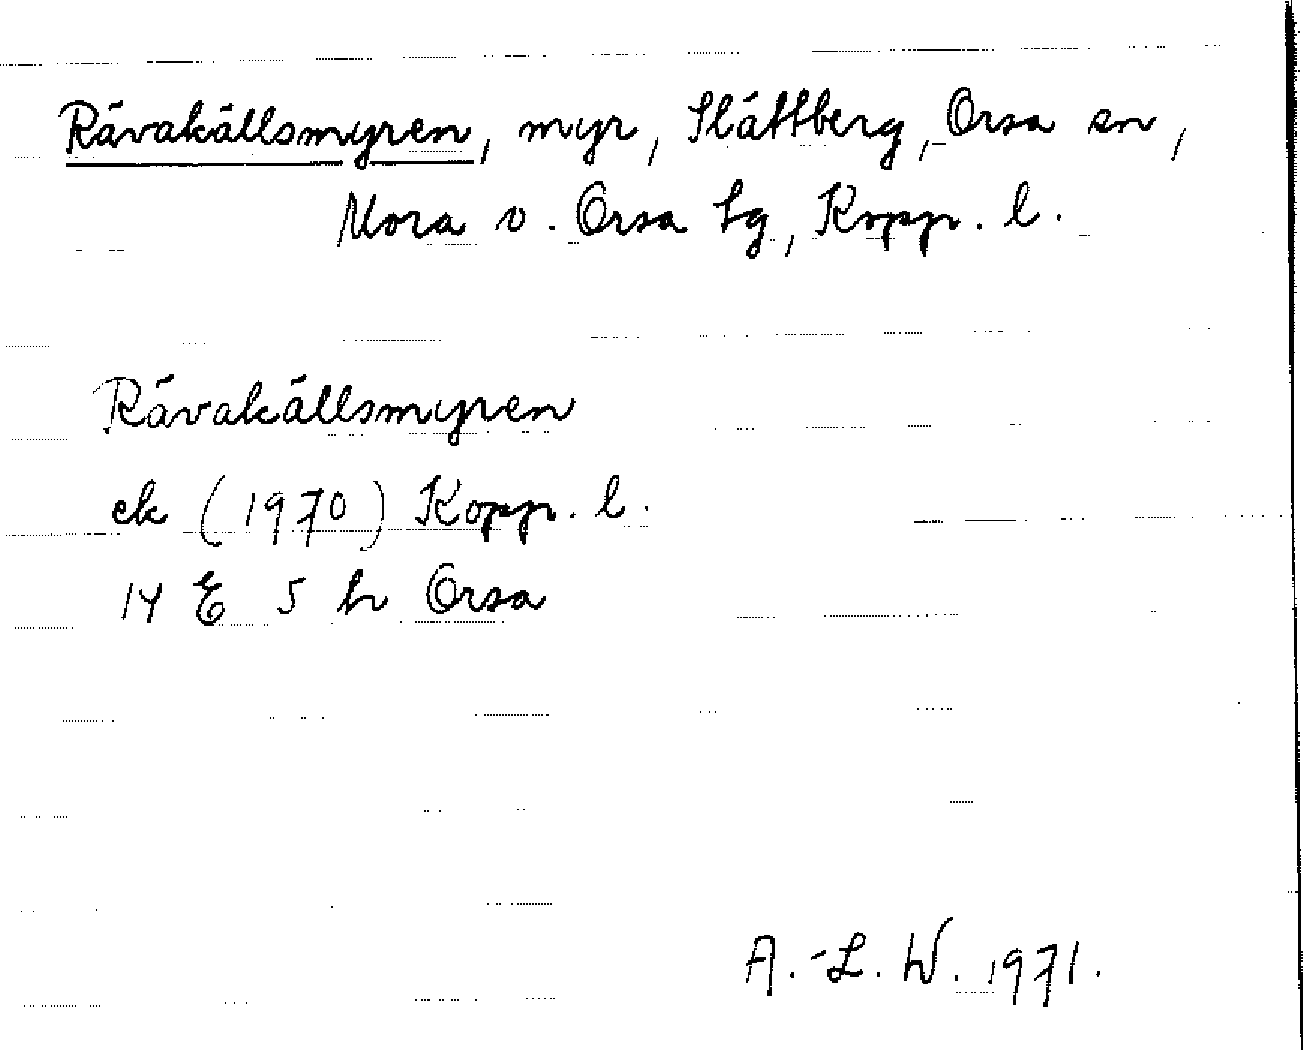 Rävakällsmyren, myr, Slättberg, Orsa sn,
Mora o. Orsa tg, Kopp. l.
Rävakällsmyren
ek (1970) Kopp. l.
14 E 5 h Orsa
A.-L. W. 1971.